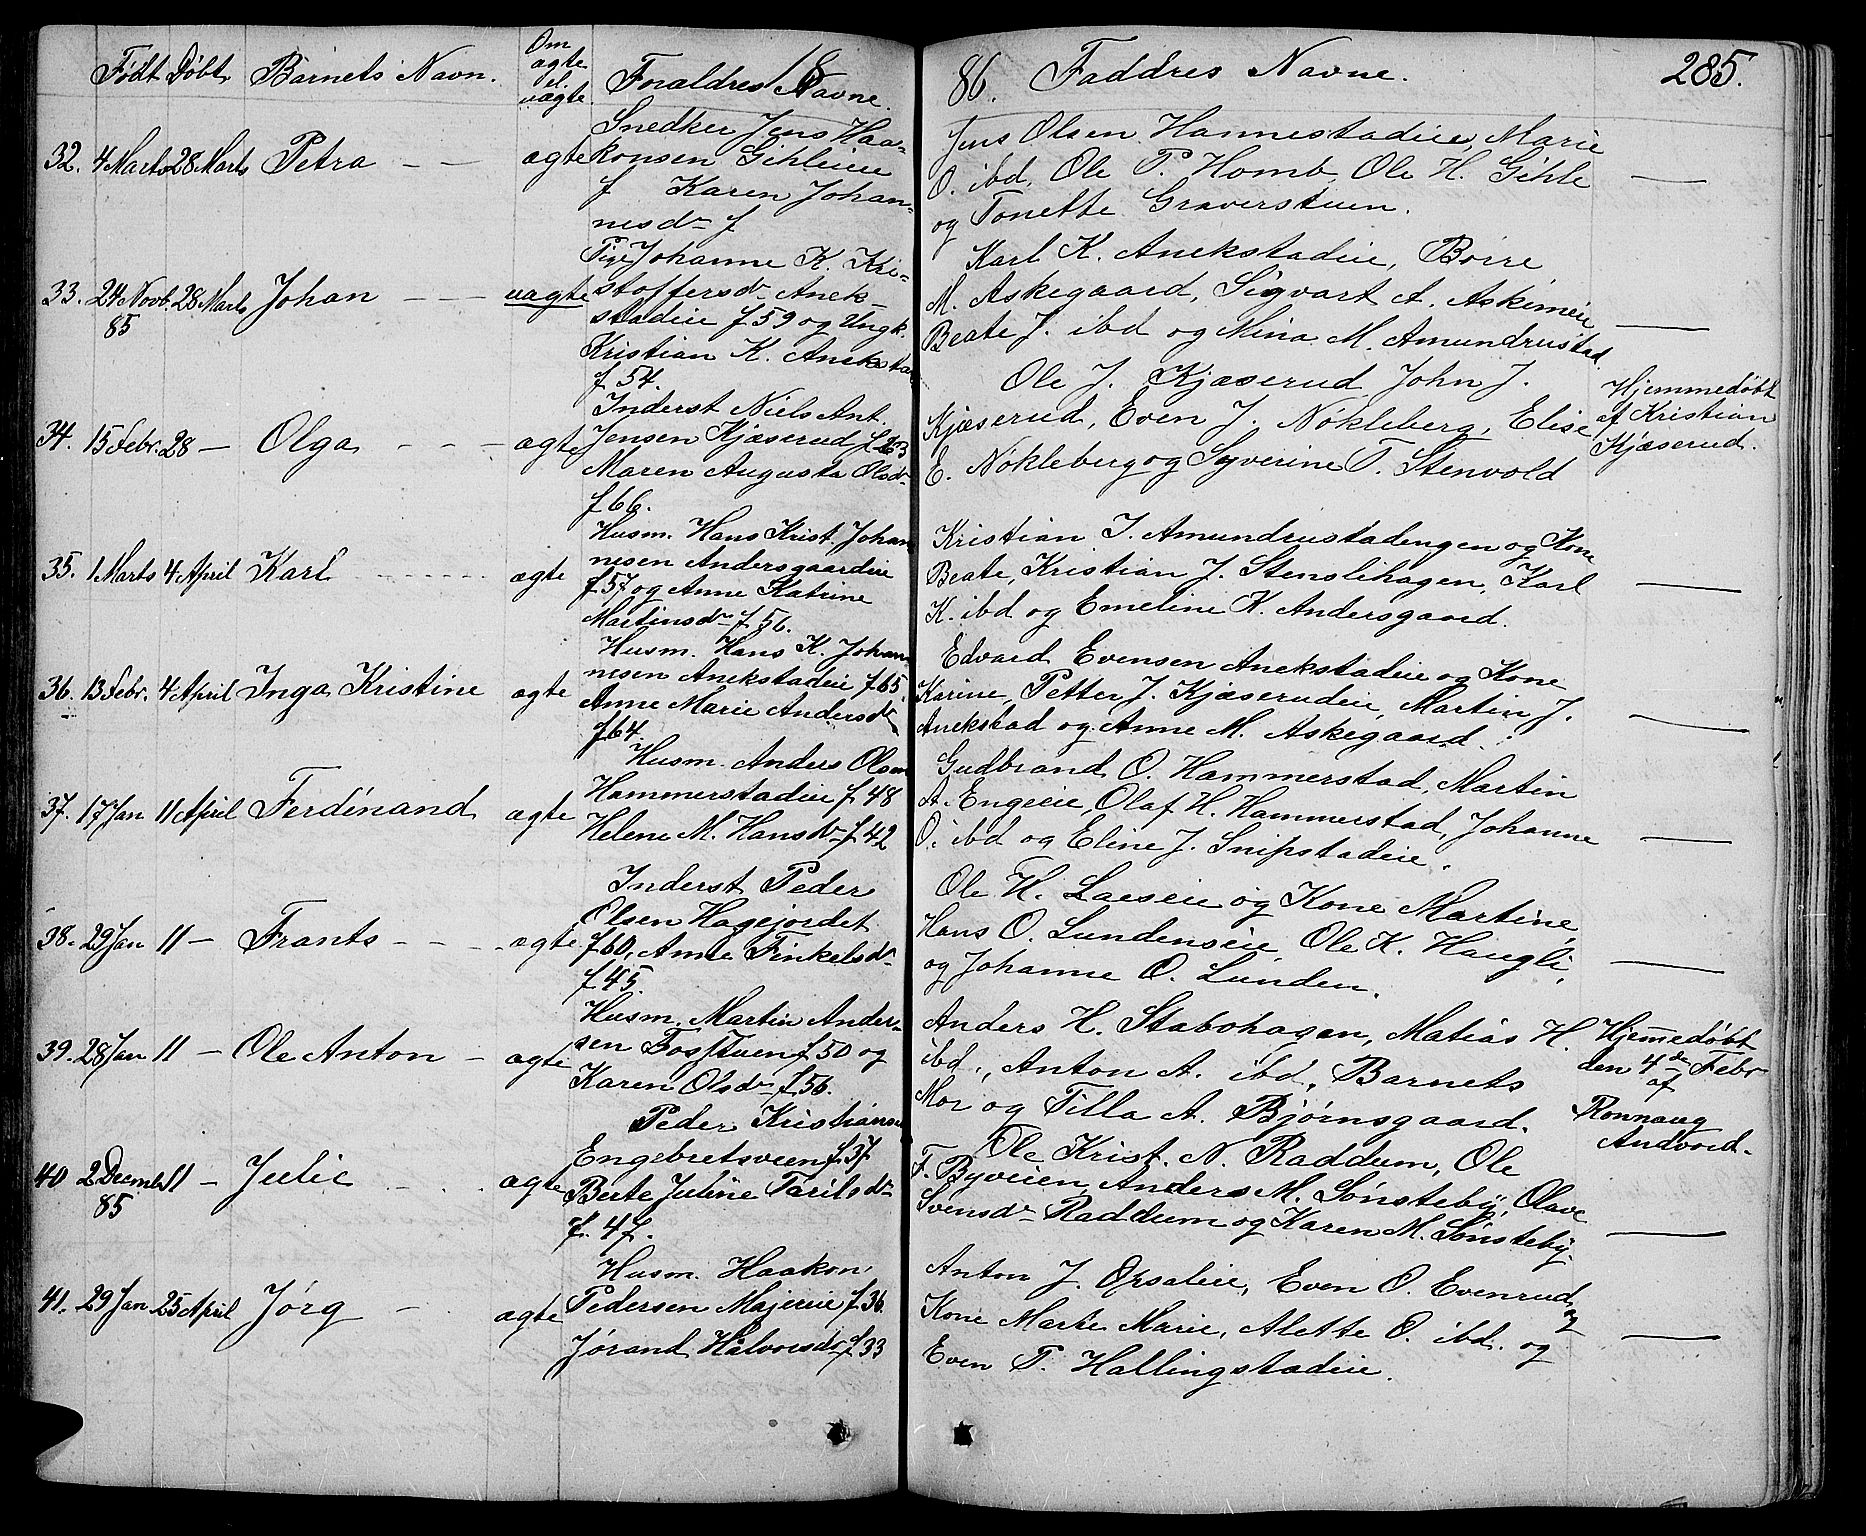 Født Døbt Barnets Navn. Om ægte el. uægte. Forældres Navne. 18
86. Faddres Navne. 285.
32. 4 Marts 28 Marts Petra - - ægte
Snedker Jens Haa-
konsen Gihleeie
f Karen Johan-
nesdr f
Jens Olsen Hannestadeie, Marie
O. ibd, Ole P. Homb, Ole H. Gihle
og Tonette Graverstuen. —
33. 24 Novb. 85 28 Marts Johan - - - uægte
Pige Johanne K. Kri-
stoffersdr Anek-
stadeie f 59 og Ungk.
Kristian K. Aneksta
f 54.
Karl K. Anekstadeie, Børre
M. Askegaard, Sigvart A. Askimeie
Beate J. ibd og Mina M. Amundrustad. —
34. 15 Febr. 28 — Olga - - - ægte
Inderst Niels Ant.
Jensen Kjæserud f 63
Maren Augusta Olsdr
f 66.
Ole J. Kjæserud, John J.
Kjæserud, Even J. Nøkleberg, Elise
E. Nøkleberg og Syverine T. Stenvold
Hjemmedøbt
af Kristian
Kjæserud.
35. 1 Marts 4 April Karl - - - - - ægte
Husm. Hans Krist. Johan
nesen Andersgaardeie
f 57 og Anne Katrine
Martinsdr f 56.
Kristian J. Amundrustadengen og Kone
Beate, Kristian J. Stenslihagen, Karl
K. ibd og Emeline K. Andersgaard. —
36. 13 Febr. 4 April Inga Kristine ægte
Husm. Hans K. Johan
nesen Anekstadeie f 65.
Anne Marie Andersdr
f 64.
Edvard Evensen Anekstadeie og Kone
Karine, Petter J. Kjæserudeie, Martin J.
Anekstad og Anne M. Askegaard. —
37. 17 Jan 11 April Ferdinand ægte
Husm. Anders Olsen
Hammerstadeie f 48
Helene M. Hansdr f 42
Gudbrand O. Hammerstad, Martin
A. Engeeie, Olaf H. Hammerstad, Johanne
O. ibd og Eline J. Snipstadeie. —
38. 29 Jan 11 — Frants - - - ægte
Inderst Peder
Olsen Hagejordet
f 60, Anne Finkelsdr
f 45.
Ole H. Laeseie og Kone Martine,
Hans O. Lundenseie, Ole K. Haugli,
og Johanne O. Lunden. —
39. 28 Jan 11 — Ole Anton - ægte
Husm. Martin Ander-
sen Fosstuen f 50 og
Karen Olsdr f 56.
Anders H. Stabohagen, Matias H.
ibd., Anton A. ibd, Barnets
Mor og Tilla A. Bjørnsgaard.
Hjemmedøbt
den 4de Febr
af
Ronnaug
Andvord.
40 2 Decemb 85 11 — Julie - . . ægte
Peder Kristiansen
Engebretsveen f. 37
Berte Juline Tarilsdr
f. 47.
Ole Krist. N. Raddum, Ole
F. Byveien, Anders M. Sønsteby, Olave
Svensdr Raddum og Karen M. Sønsteby. —
41. 29 Jan 25 April Jørg - . . ægte
Husm. Haakon
Pedersen Majereie f 36.
Jørand Halvorsdr f 33
Anton J. Opsaleie, Even O. Evenrud og
Kone Marte Marie, Alette O. ibd. og
Even T. Hallingstadeie. —